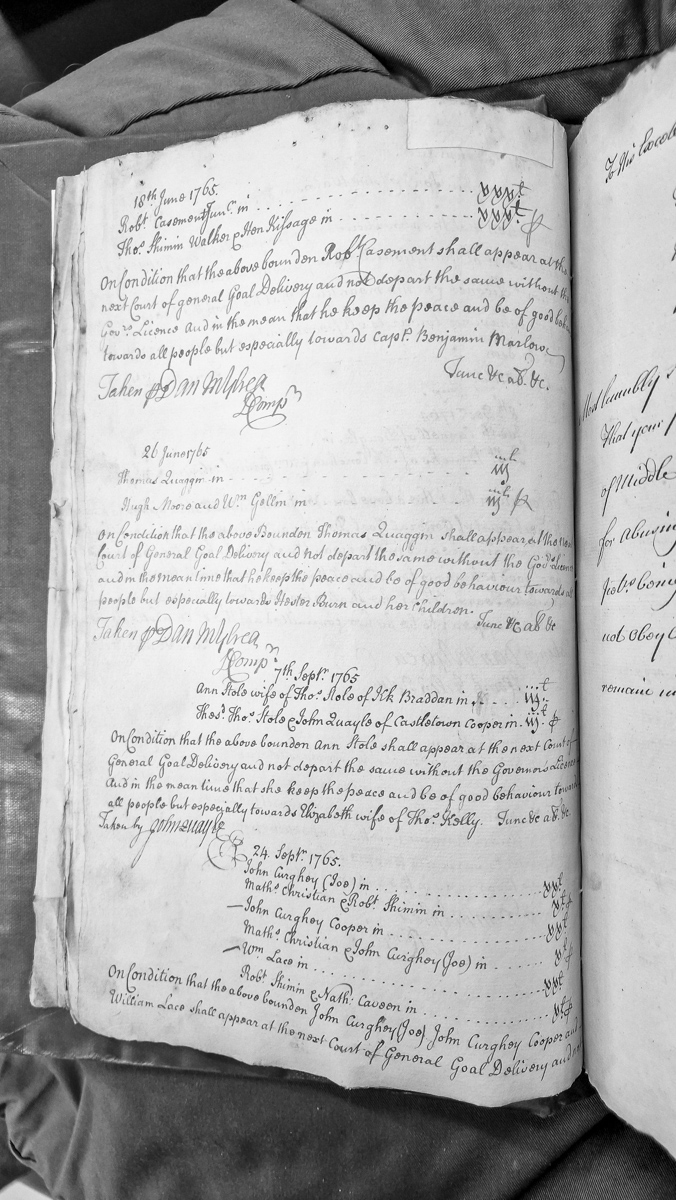 18th June 1765.
Robt. Casement Junr. in . . . . . . . . . . . . xxxl
Thos. Skimin Walker & Hen Kissage in . . . . . . . . . . xxxl
On Condition that the above bounden Robt. Casement shall appear at the
next Court of general Goal Delivery and not depart the same without the
Govrs. Licence And in the mean that he keep the peace and be of good
towards all people but especially towards Capt. Benjamin Marlow
Tunc &c ab. &c.
Taken p Dan Mylrea
Comp
26 June 1765
Thomas Quaggin in . . . . . . . . . . . . iijli
Hugh Moore and Wm. Gellin in iijli
On Condition that the above Bounden Thomas Quaggin shall appear at the
Court of General Goal Delivery and not depart the same without the Govrs.
and in the mean time that he keep the peace and be of good behaviour towards all
people but especially towards Hester Burn and her Children.
Tunc &c ab &c
Taken p Dan Mylrea
Comp
7th Septr. 1765
Ann Stole wife of Thos. Stole of Kk Braddan in . . . . iijl
Thos. Stole & John Quayle of Castletown Cooper in . iijl
On Condition that the above bounden Ann Stole shall appear at the next Court of
General Goal Delivery and not depart the same without the Governors Licence
And in the mean time that she keep the peace and be of good behaviour towards
all people but especially towards Elizabeth wife of Thos. Kelly. Tunc &c ab. &c.
Taken by John Quayle
24. Septr. 1765.
John Curghey (Joe) in . . . . . . . . . . . . xxl
Maths. Christian & Robt. Skimin in . . . . . . . . . xl
John Curghey Cooper in . . . . . . . . . . . . xxl
Maths. Christian & John Curghey (Joe) in . . . . . . xl
Wm. Lace in . . . . . . . . . . . . xxl
Robt. Skimin & Nath. Caveen in . . . . . . . . . xl
On Condition that the above bounden John Curghey (Joe) John Curghey Cooper and
William Lace shall appear at the next Court of General Goal Delivery and
To His
Most humbly
That your
of Middle
for abusing
being
not obey
remain